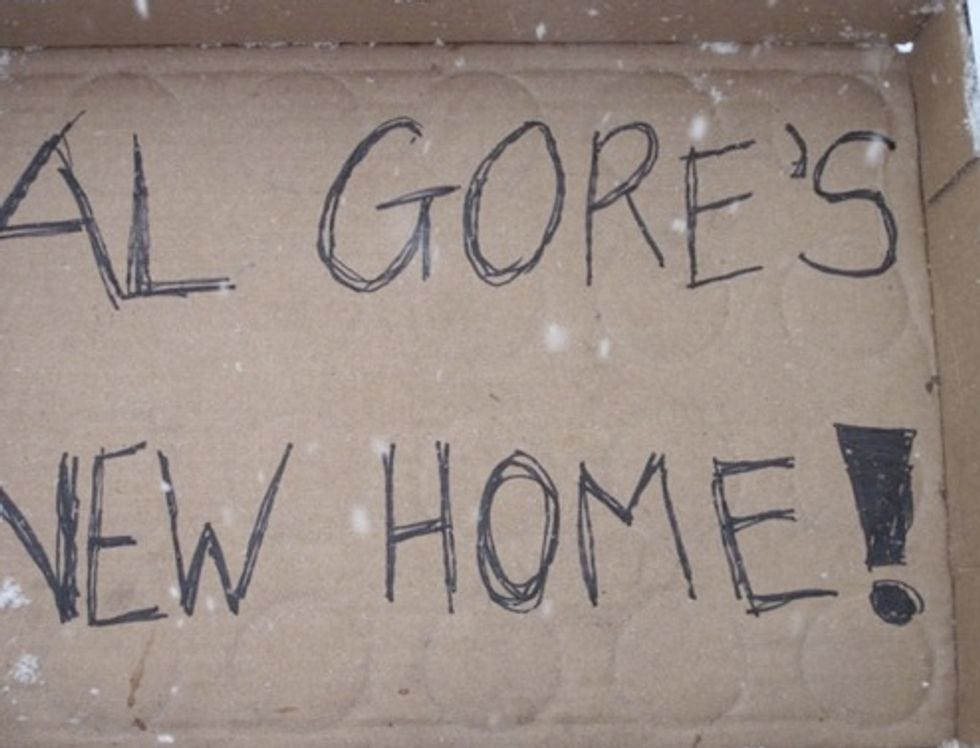 AL GORE'S
NEW HOME!